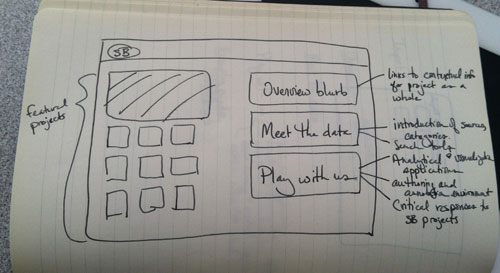 SB
featured
projects
Overview blurb
Meet the data
Play with us
links to contextual info
for project as a
whole
introduction of sources,
categories
Search tools
Analytical &
applications
authoring and
environment
Critical responses to
SB projects